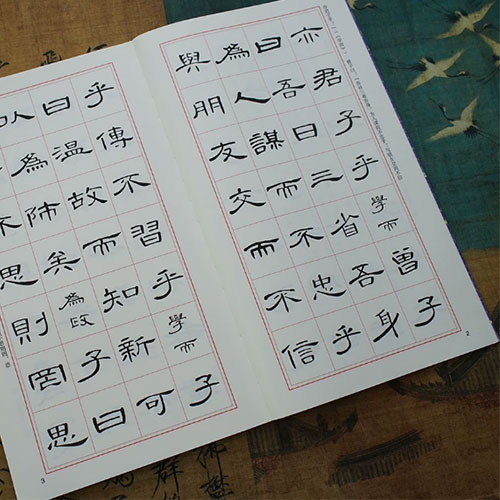 亦君子乎 學而 曾子
曰吾日三省吾身
為人謀而不忠乎
與朋友交而不信
2
乎傳不習乎 學而 子
曰溫故而知新可
以為師矣 為政 子曰
不思則罔思
3